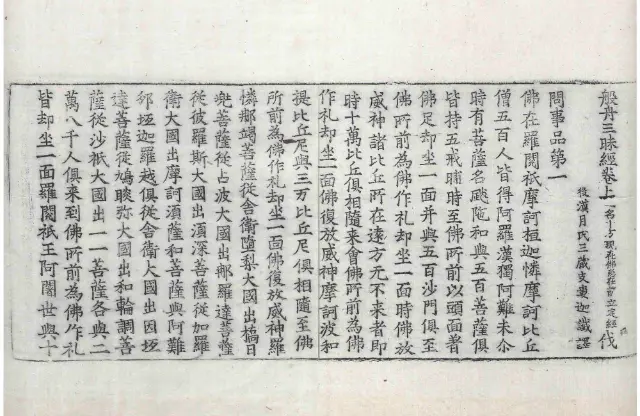 般舟三昧經卷上 一名十方現在佛悉在前立定經 伐
後漢月氏三藏支婁迦讖譯
問事品第一
佛在羅閱祇摩訶桓迦憐摩訶比丘
僧五百人皆得阿羅漢獨阿難未尒
時有菩薩名颰陁和與五百菩薩俱
皆持五戒晡時至佛所前以頭面著
佛足却坐一面并與五百沙門俱至
佛所前為佛作礼却坐一面時佛放
威神諸比丘所在遠方无不來者即
時十萬比丘俱相隨來會佛所前為佛
作礼却坐一面佛復放威神摩訶波和
提比丘尼與三万比丘尼俱相隨至佛
所前為佛作礼却坐一面佛復放威神羅
憐鄰竭菩薩從舍衛墮梨大國出橋日
兜菩薩從占波大國出那羅達菩薩
從彼羅斯大國出須深菩薩從加羅
衛大國出摩訶須薩和菩薩與阿難
邠坻迦羅越俱從舍衛大國出因坻
達菩薩從鳩睒弥大國出和輪調菩
薩從沙祇大國出一一菩薩各與二
萬八千人俱來到佛所前為佛作礼
皆却坐一面羅閱祇王阿闍世與十